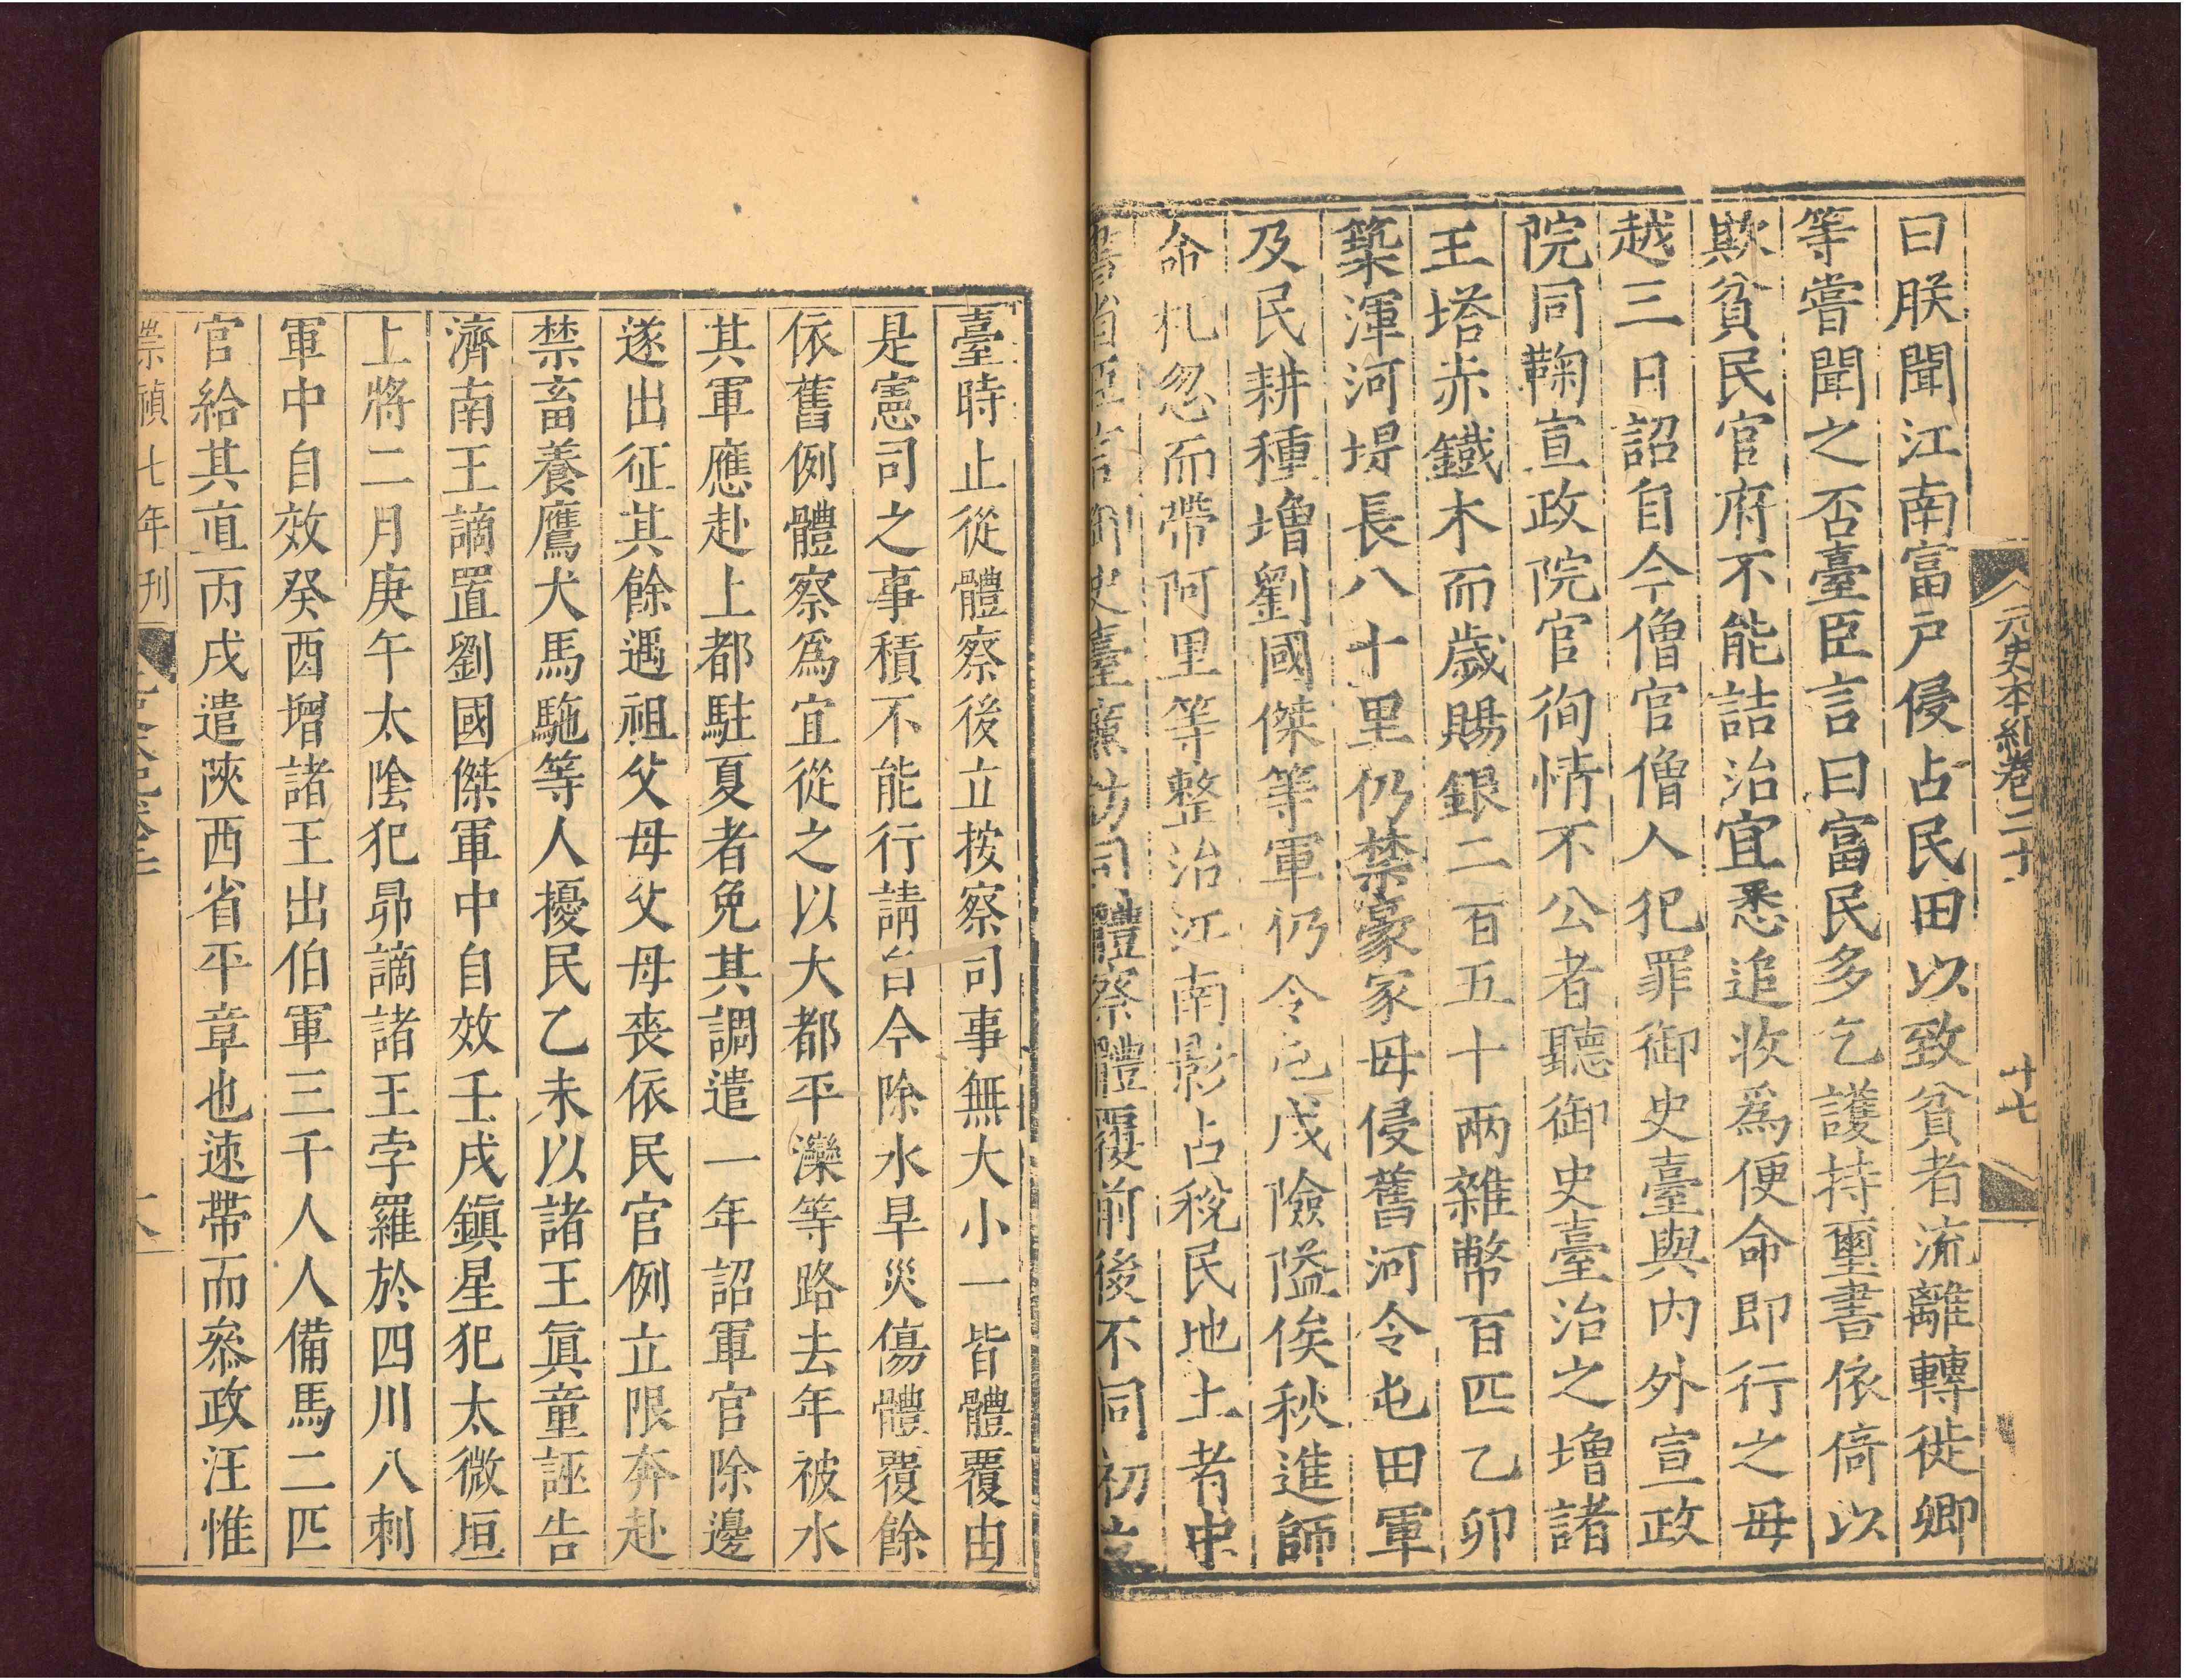 元史本紀卷二十
十七
曰朕聞江南富戸侵占民田以致貧者流離轉徙卿
等嘗聞之否臺臣言曰富民多乞護持璽書依倚以
欺貧民官府不能詰治宜悉追收爲便命即行之毋
越三日詔自今僧官僧人犯罪御史臺與内外宣政
院同鞠宣政院官徇情不公者聽御史臺治之增諸
王塔赤鐵木而歲賜銀二百五十兩雜幣百匹乙卯
築渾河堤長八十里仍禁豪家毋侵舊河令屯田軍
及民耕種增劉國傑等軍仍令屯戍險隘俟秋進師
命札忽而帶阿里等整治江南影占稅民地土者中
書省御史臺廉訪司體察體覆前後不同初立
臺時止從體察後立按察司事無大小一皆體覆由
是憲司之事積不能行請自今除水旱災傷體覆餘
依舊例體察爲宜從之以大都平灤等路去年被水
其軍應赴上都駐夏者免其調遣一年詔軍官除邊
遂出征其餘遇祖父母父母喪依民官例立限奔赴
禁畜養鷹犬馬駞等人擾民乙未以諸王眞童誣告
濟南王謫置劉國傑軍中自效壬戌鎭星犯太微垣
上將二月庚午太陰犯昴謫諸王孛羅於四川八剌
軍中自效癸酉增諸王出伯軍三千人人備馬二匹
官給其直丙戌遣陝西省平章也速帶而叅政汪惟
崇禎七年刊